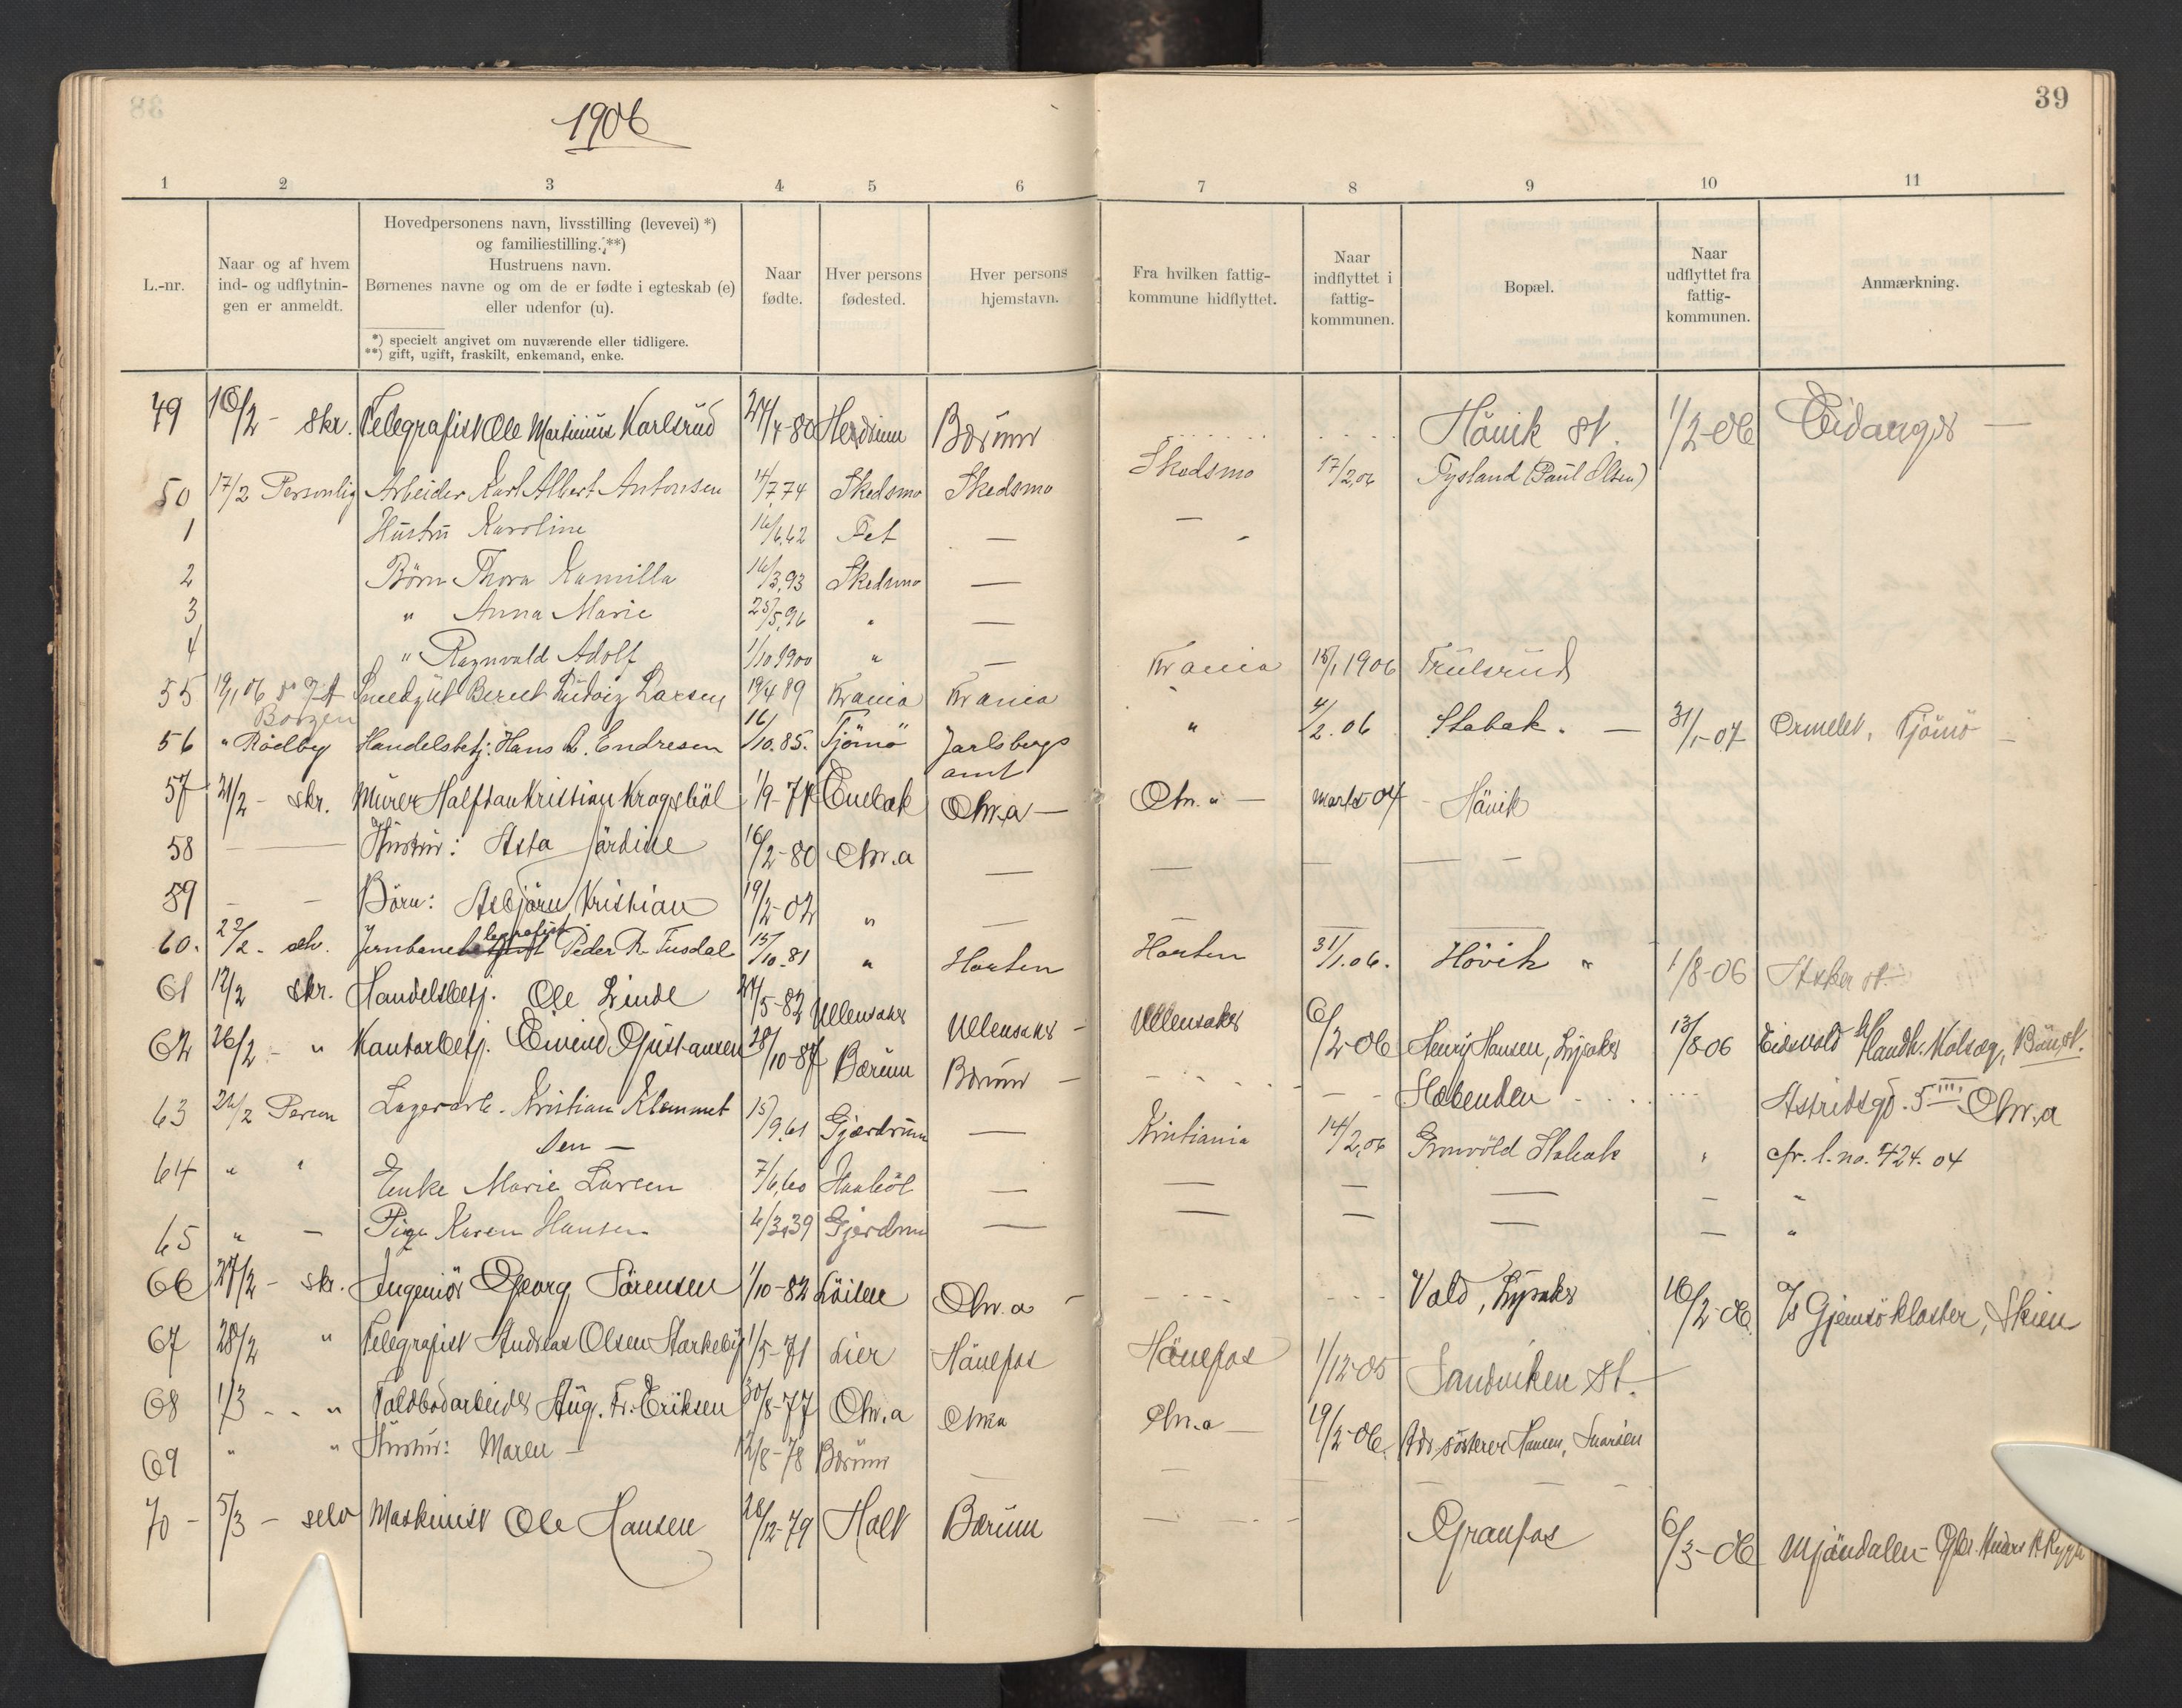 39
1906
1 2 3 4 5 6 7 8 9 10 11
L.-nr.
Naar og af hvem
ind- og udflytnin-
gen er anmeldt.
Hovedpersonens navn, livsstilling (levevei) *)
og familiestilling. **)
Hustruens navn.
Børnenes navne og om de er fødte i egteskab (e)
eller udenfor (u).
*) specielt angivet om nuværende eller tidligere.
**) gift, ugift, fraskilt, enkemand, enke.
Naar
fødte.
Hver persons
fødested.
Hver persons
hjemstavn.
Fra hvilken fattig-
kommune hidflyttet.
Naar
indflyttet i
fattig-
kommunen.
Bopæl.
Naar
udflyttet fra
fattig-
kommunen.
Anmærkning.
49 10/2 - skr. Telegrafist Ole Martinius Karlsrud 27/4-80 Bærum Hövik st. 1/2-06 Eidanger —
50 17/2 Personlig Arbeider Karl Albert Antonsen 14/7 74 Skedsmo Skedsmo Skedsmo 17/2,06 Tysland (Paul Olsen)
1 Hustru Karoline 16/6.62 Fet — — -
2 Børn Thora Kamilla 16/3,93 Skedsmo —
3 " Anna Marie 25/5,96 " —
4 " Ragnvald Adolf 1/10 1900 " —
55 19/1 06 Smedgut Bernt Ludvig Larsen 19/4 89 Krania Krania Krania 15/1 1906 Trulsrud
Borgen
56 " Rödby Handelsbetj. Hans A. Endresen 16/10.85. Tjömö Jarlsbergs " 4/2.06 Stabak. — 31/1-07 Ormelet, Tjömö —
amt
57 21/2 - skr. Murer Halfdan Kristian Krogsböl 1/9-74 Enebak Chr.a — Chr. a — Marts-04 - Hövik
58 — Hustru: Asta Jördine 16/2-80 Chr.a — — — — —
59 - - Børn: Asbjörn Kristian 19/2-02 " — — — —
60. 22/2 - selv. Jernbanetelegrafist Peder R. Tusdal 15/10.81 " Horten Horten 31/1.06. Hövik " 1/8-06 Asker st.
61 12/2 skr. Handelsbetj. Ole Linde 24/5-82 Ullensaker Ullensaker - Ullensaker 6/2-06 Henry Hansen, Lysaker 13/8-06 Eidsvold Landh. Bön st.
62 26/2 - " Kontorbetj. Eivind Gustansen 28/10-87 Bærum Bærum - - - - - - - Slæbenden Astridsgd. 5 III Chr.a
63 26/2 Person Lagerarb. Kristian Klemmet 15/9.61 Gjerdrum — Kristiania 14/2,06 Grønvöld Stabak " cfr. l.no. 424.04
sen —
64 " " Enke Marie Larsen 7/6,60 Haaböl — — — — — "
65 " — Pige Karen Hansen 4/3.39 Gjerdrum — — — — — "
66 27/2 - skr. Ingeniör Georg Sörensen 1/10-82 Löiten Chr.a - - - - - - - Vold, Lysaker 10/2-06. A/S Gjemsökloster, Skien
67 28/2 " Telegrafist Andreas Olsen Starkeby 1/5-71 Lier Hönefos Hönefos 1/12-05 Sandviken St.
68 1/3 - - " Toldbodarbeider Aug. Fr. Eriksen 30/8-77 Chr.a Chr.a Chr.a — 19/2-06. Adr. Hansen, Snaröen
69 " " Hustru: Maren — 12/8-78 Bærum — — — — — —
70 - 5/3 - selv Maskinist Ole Hansen 26/12-79 Holt Bærum — - - Granfos 6/3-06 Mjöndalen -